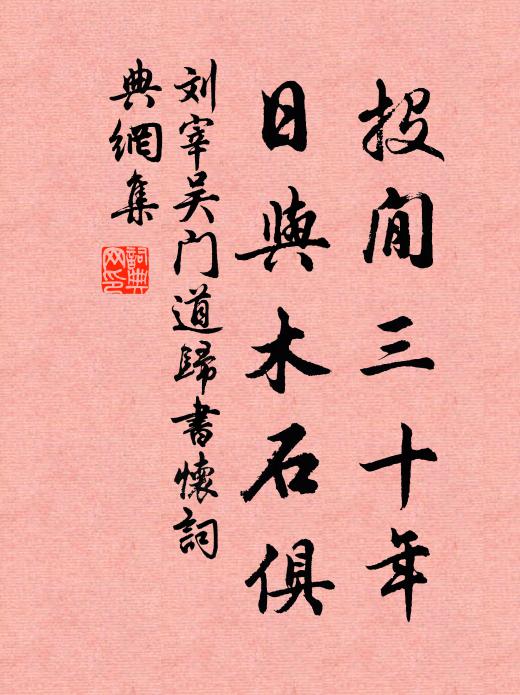 投閒三十年
日與木石俱
刘宰吴门道歸書懷詞
典網集
詞典
网印